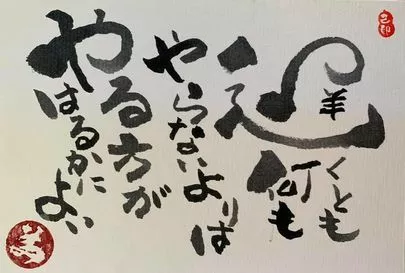 遅くとも
何も
やらないよりは
やる方が
はるかによい